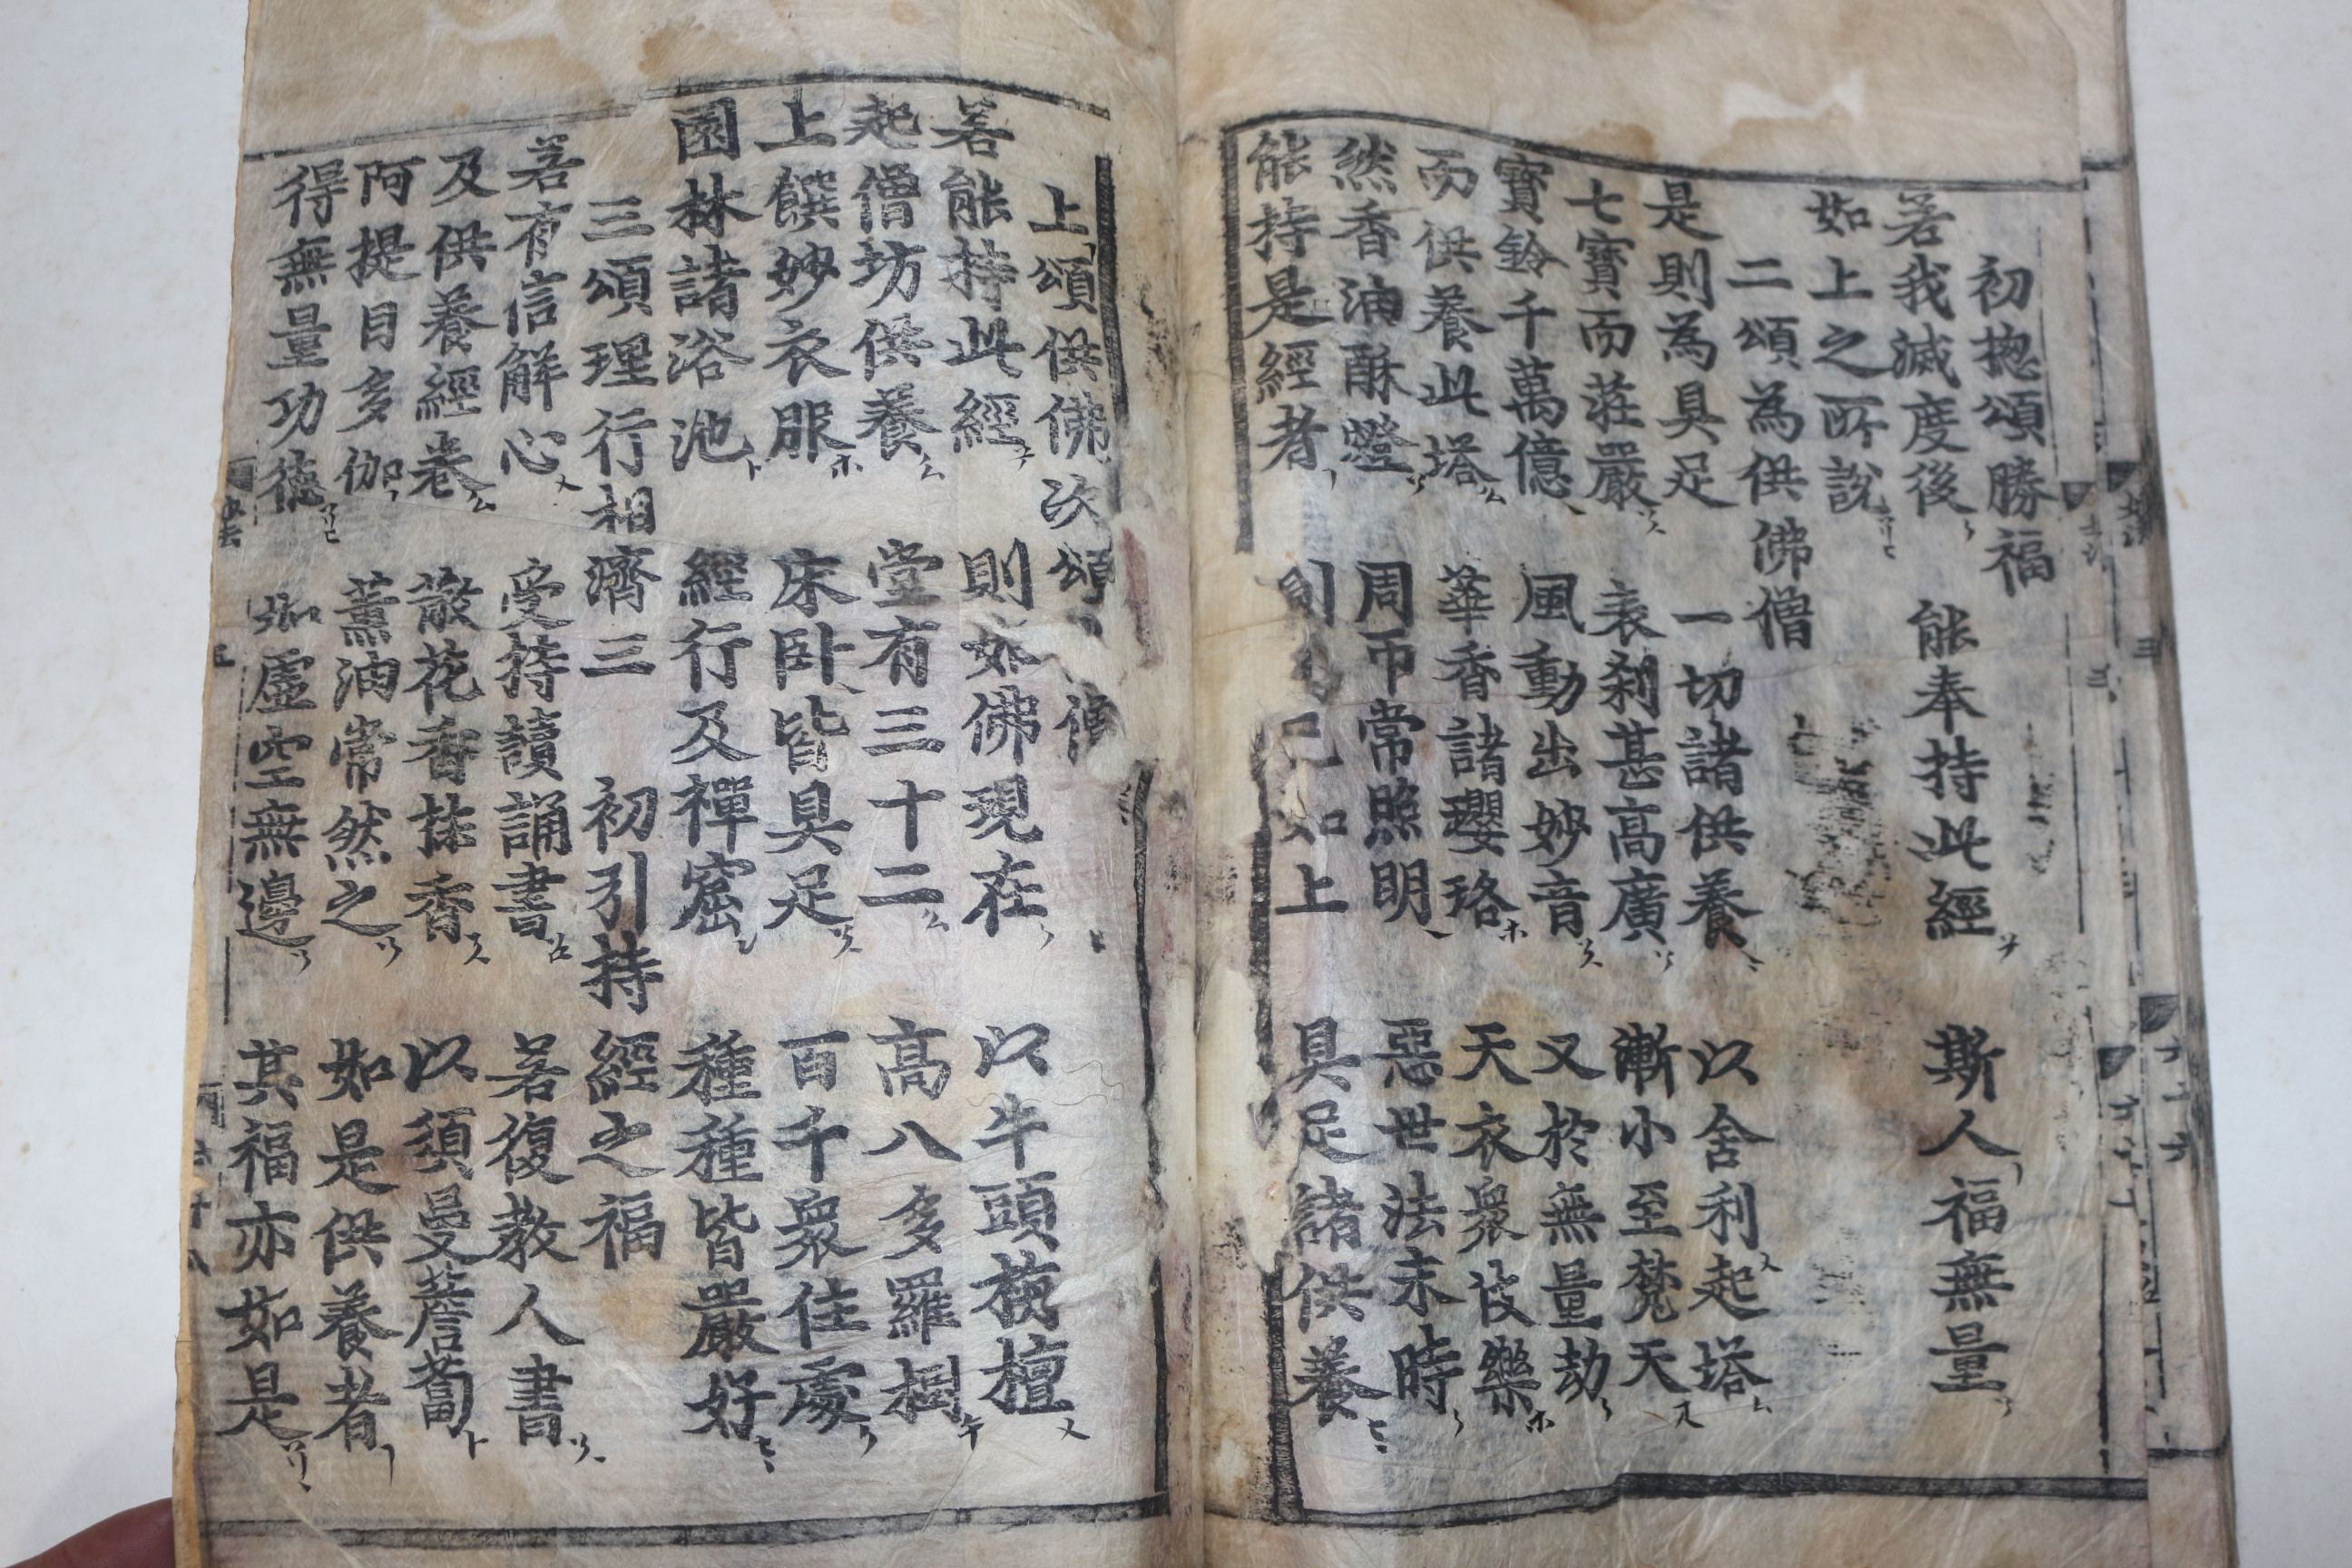 初揔頌勝福
若我滅度後 能奉持此經 斯人福無量
如上之所說
二頌為供佛僧
是則為具足 一切諸供養 以舍利起塔
七寶而莊嚴 表剎甚高廣 漸小至梵天
寶鈴千萬億 風動出妙音 又於無量劫
而供養此塔 華香諸瓔珞 天衣衆伎樂
然香油酥燈 周帀常照明 惡世法末時
能持是經者 則 已如上 具足諸供養
上頌供佛次頌 僧
若能持此經 則如佛現在 以牛頭栴檀
起僧坊供養 堂有三十二 高八多羅樹
上饌妙衣服 床卧皆具足 百千衆住處
園林諸浴池 經行及禪窟 種種皆嚴好
三頌理行相濟三 初引持經之福
若有信解心 受持讀誦書 若復教人書
及供養經卷 散花香抹香 以須曼薝蔔
阿提目多伽 薰油常然之 如是供養者
得無量功德 如虛空無邊 其福亦如是